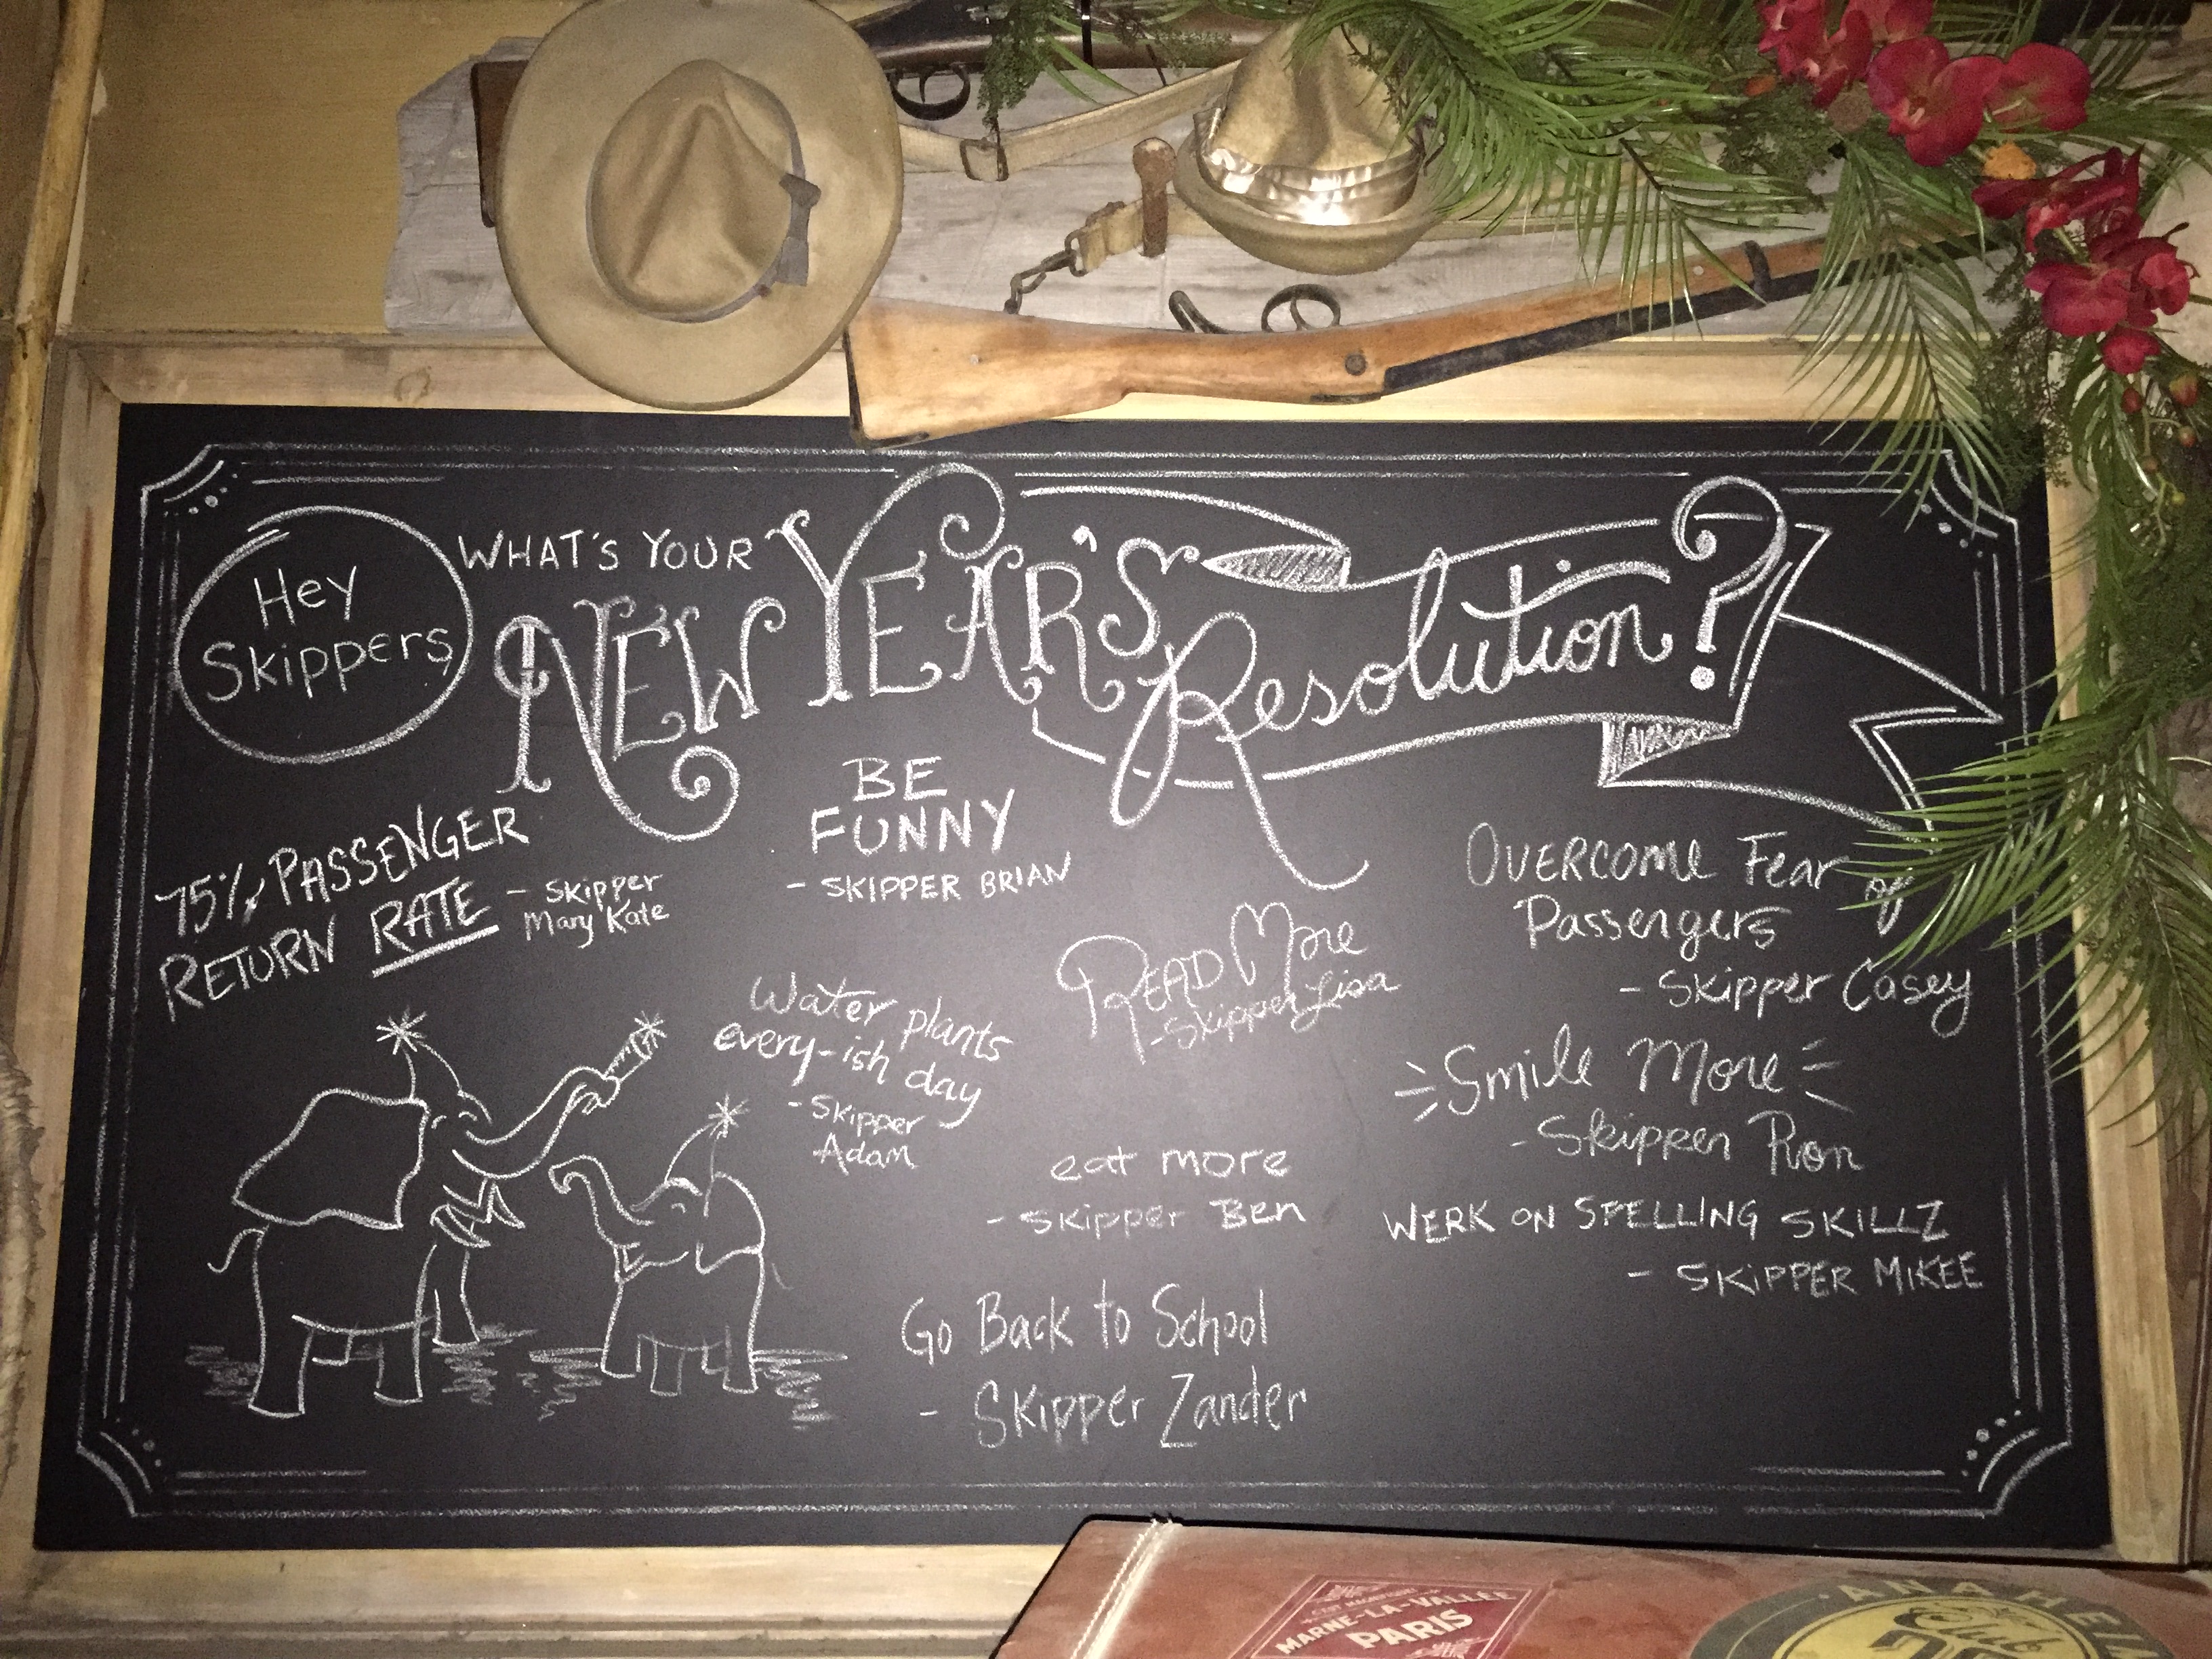 Hey
Skippers
WHAT'S YOUR
NEW YEAR'S
Resolution?
75% PASSENGER
RETURN RATE
- Skipper
Mary Kate
BE
FUNNY
- SKIPPER BRIAN
OVERCOME Fear of
Passengers
- Skipper Casey
READ More
- Skipper Lisa
Water plants
every-ish day
- Skipper
Adam
Smile More
- Skipper Ron
eat more
- Skipper Ben
WERK ON SPELLING SKILLZ
- SKIPPER MIKEE
Go Back to School
- Skipper Zander
MARNE-LA-VALLÉE
PARIS
ANAHEIM
Club